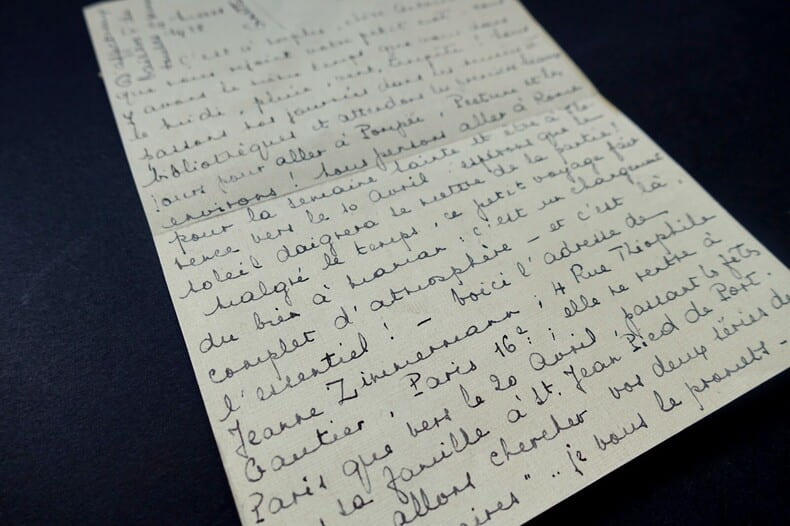 C'est à
que nous rejoint votre petit mot. Nous
avons le même temps que vous dans
le midi, pluie, vent, tempête! Nous
passons nos journées dans les musées et
bibliothèques et attendons les premiers beaux
jours pour aller à Pompéi, Pestum et les
environs! Nous pensons aller à Rome
pour la semaine sainte et être à Flo
rence vers le 10 avril. espérons que le
soleil daignera se mettre de la partie!
Malgré le temps, ce petit voyage fait
du bien à maman: c'est un changement
complet d'atmosphère - et c'est là
l'essentiel! - Voici l'adresse de
Jeanne Zimmermann, 4 Rue Théophile
Gautier, Paris 16e; elle ne rentre à
Paris que vers le 20 Avril, passant les fêtes
sa famille à St. Jean Pied de Port.
allons chercher vos deux séries de
aires" .. je vous le promets -